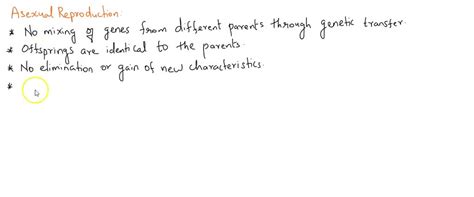 Asexual Reproduction:
* No mixing of genes from different parents through genetic transfer.
* Offsprings are identical to the parents.
* No elimination or gain of new characteristics.
*